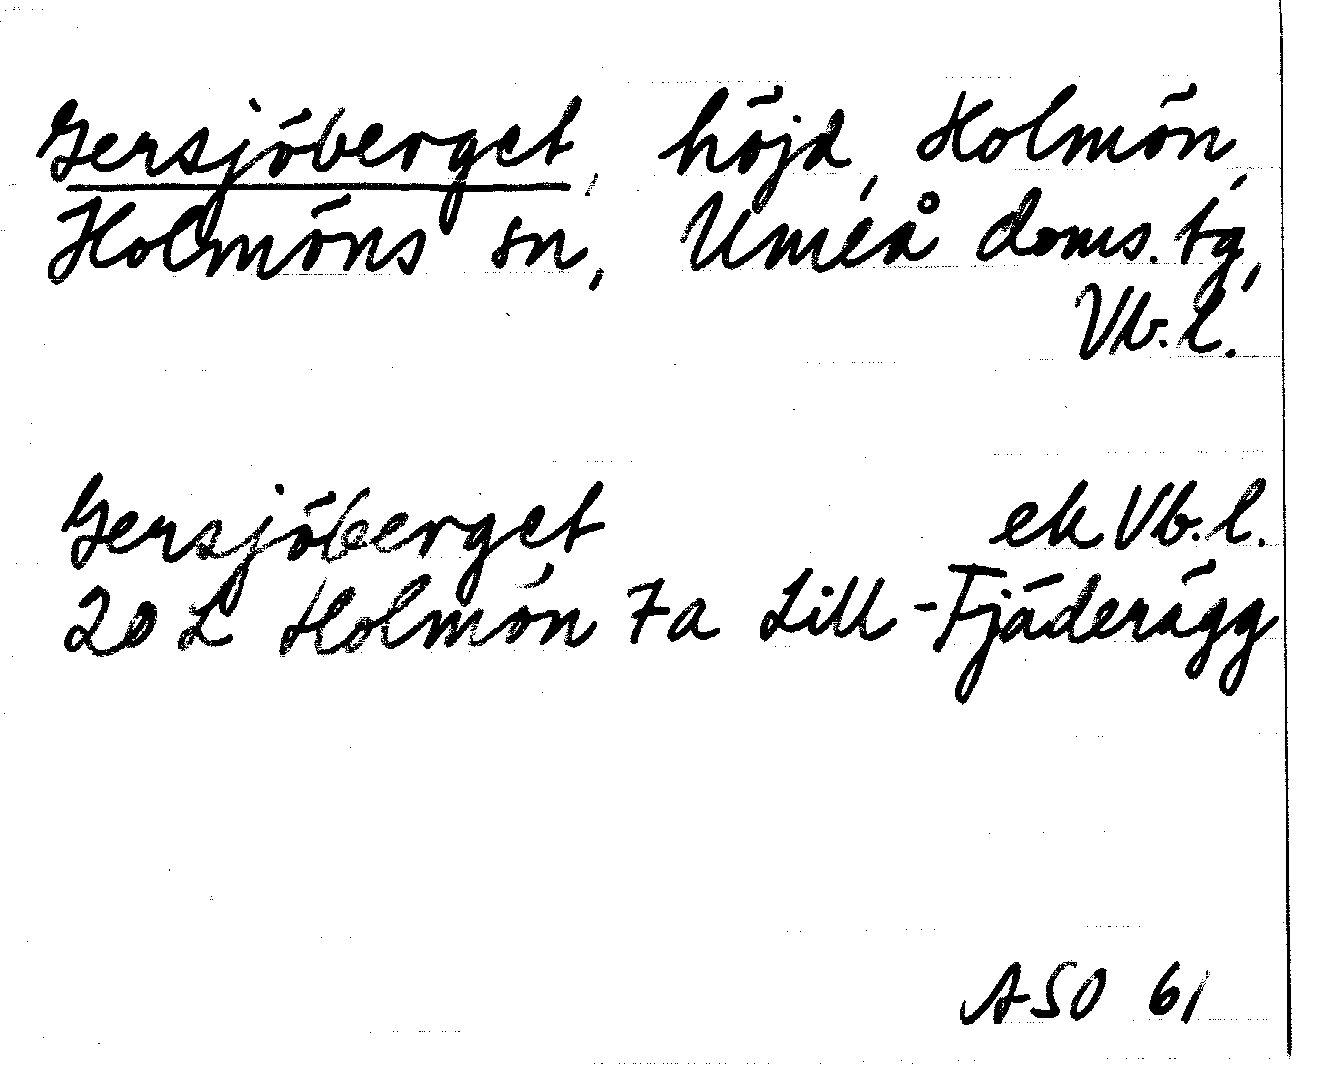 Gersjöberget, höjd, Holmön,
Holmöns sn, Umeå doms. tg,
Vb. l.
Gersjöberget ek Vb. l.
20 L Holmön 7a Lill-Fjäderägg
ASO 61